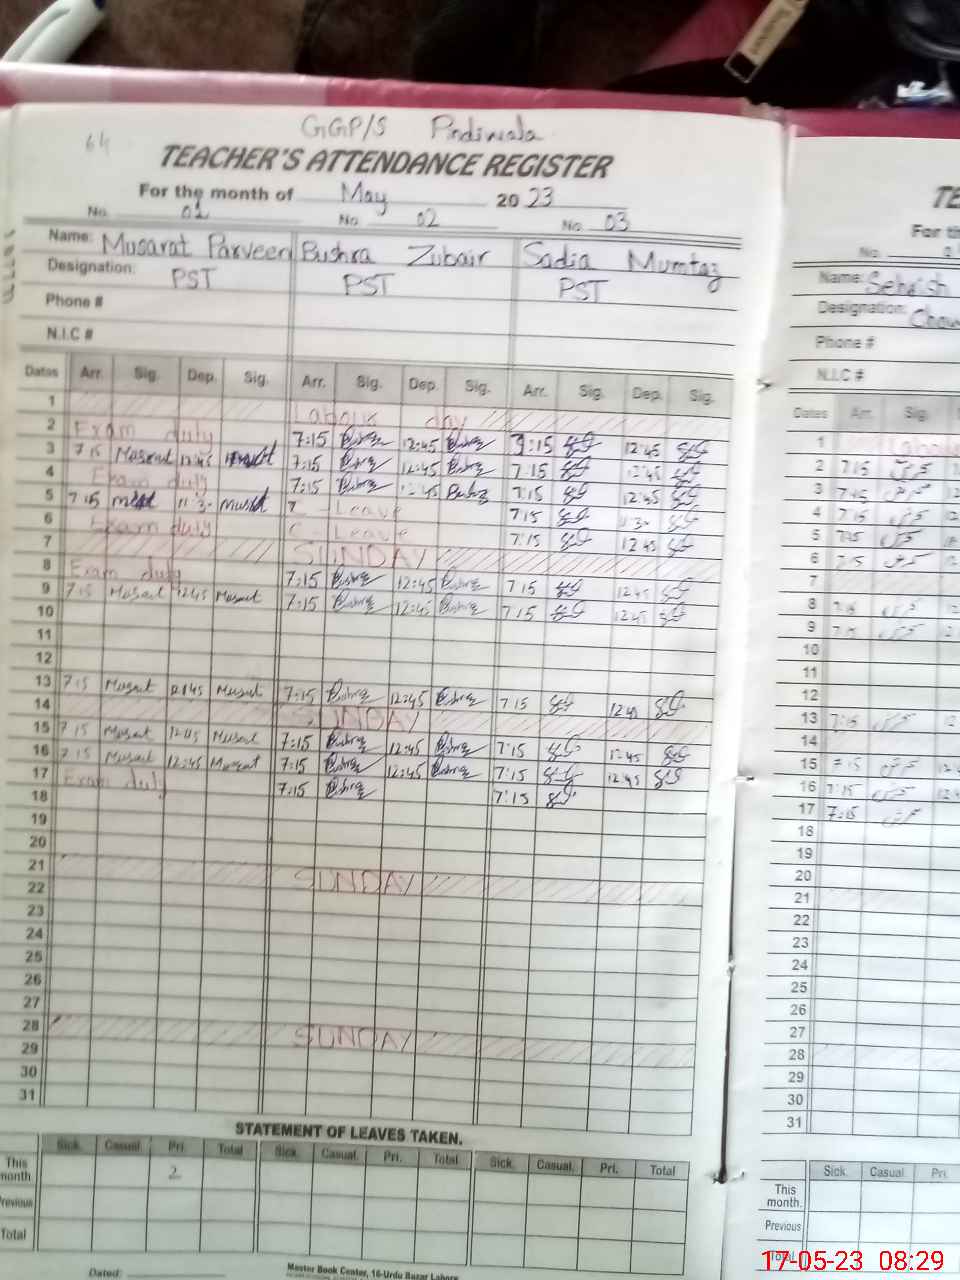 64
GGP/S Pindiwala
TEACHER'S ATTENDANCE REGISTER
For the month of May 2023
No. 01 No. 02 No. 03
Name: Musarat Parveen Bushra Zubair Sadia Mumtaz
Designation: PST PST PST
Phone #
N.I.C #
Dates Arr. Sig. Dep. Sig. Arr. Sig. Dep. Sig. Arr. Sig. Dep. Sig.
1 Labour day
2 Exam duty 7:15 Bushra 12:45 Bushra 7:15 12:45
3 7 15 Musarat 12:45 Musarat 7:15 Bushra 12:45 Bushra 7:15 12:45
4 Exam duty 7:15 Bushra 12:45 Bushra 7:15 12:45
5 7 15 11:30 C - Leave 7:15 11:30
6 Exam duty C - Leave 7:15 12 45
7 SUNDAY
8 Exam duty 7:15 Bushra 12:45 Bushra 7 15 12 45
9 7 15 Musarat 12:45 Musarat 7:15 Bushra 12:45 Bushra 7 15 12 45
10
11
12
13 7 15 Musarat 12:45 Musarat 7:15 Bushra 12:45 Bushra 7 15 12 45
14 SUNDAY
15 7 15 Musarat 12:45 Musarat 7:15 Bushra 12:45 Bushra 7:15 12 45
16 7 15 Musarat 12:45 Musarat 7:15 Bushra 12:45 Bushra 7:15 12:45
17 Exam duty 7:15 Bushra 7:15
18
19
20
21 SUNDAY
22
23
24
25
26
27
28 SUNDAY
29
30
31
STATEMENT OF LEAVES TAKEN.
Sick. Casual. Pri. Total Sick. Casual. Pri. Total Sick. Casual. Pri. Total
This month 2
Previous
Total
Dated:
Master Book Center, 16-Urdu Bazar Lahore
TE
For th
No.
Name: Sehrish
Designation:
Phone #
N.I.C #
Dates Arr. Sig.
1
2 7:15
3 7:45
4 7:15
5 7:15
6 7:15
7
8 7:15
9 7:15
10
11
12
13 7:15
14
15 7:15
16 7:15
17 7:15
18
19
20
21
22
23
24
25
26
27
28
29
30
31
Sick. Casual. Pri.
This month.
Previous
Total
17-05-23 08:29